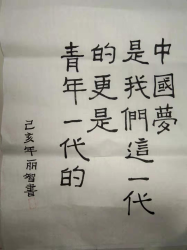 中國夢
是我們這一代
的更是
青年一代的
己亥年丽智書